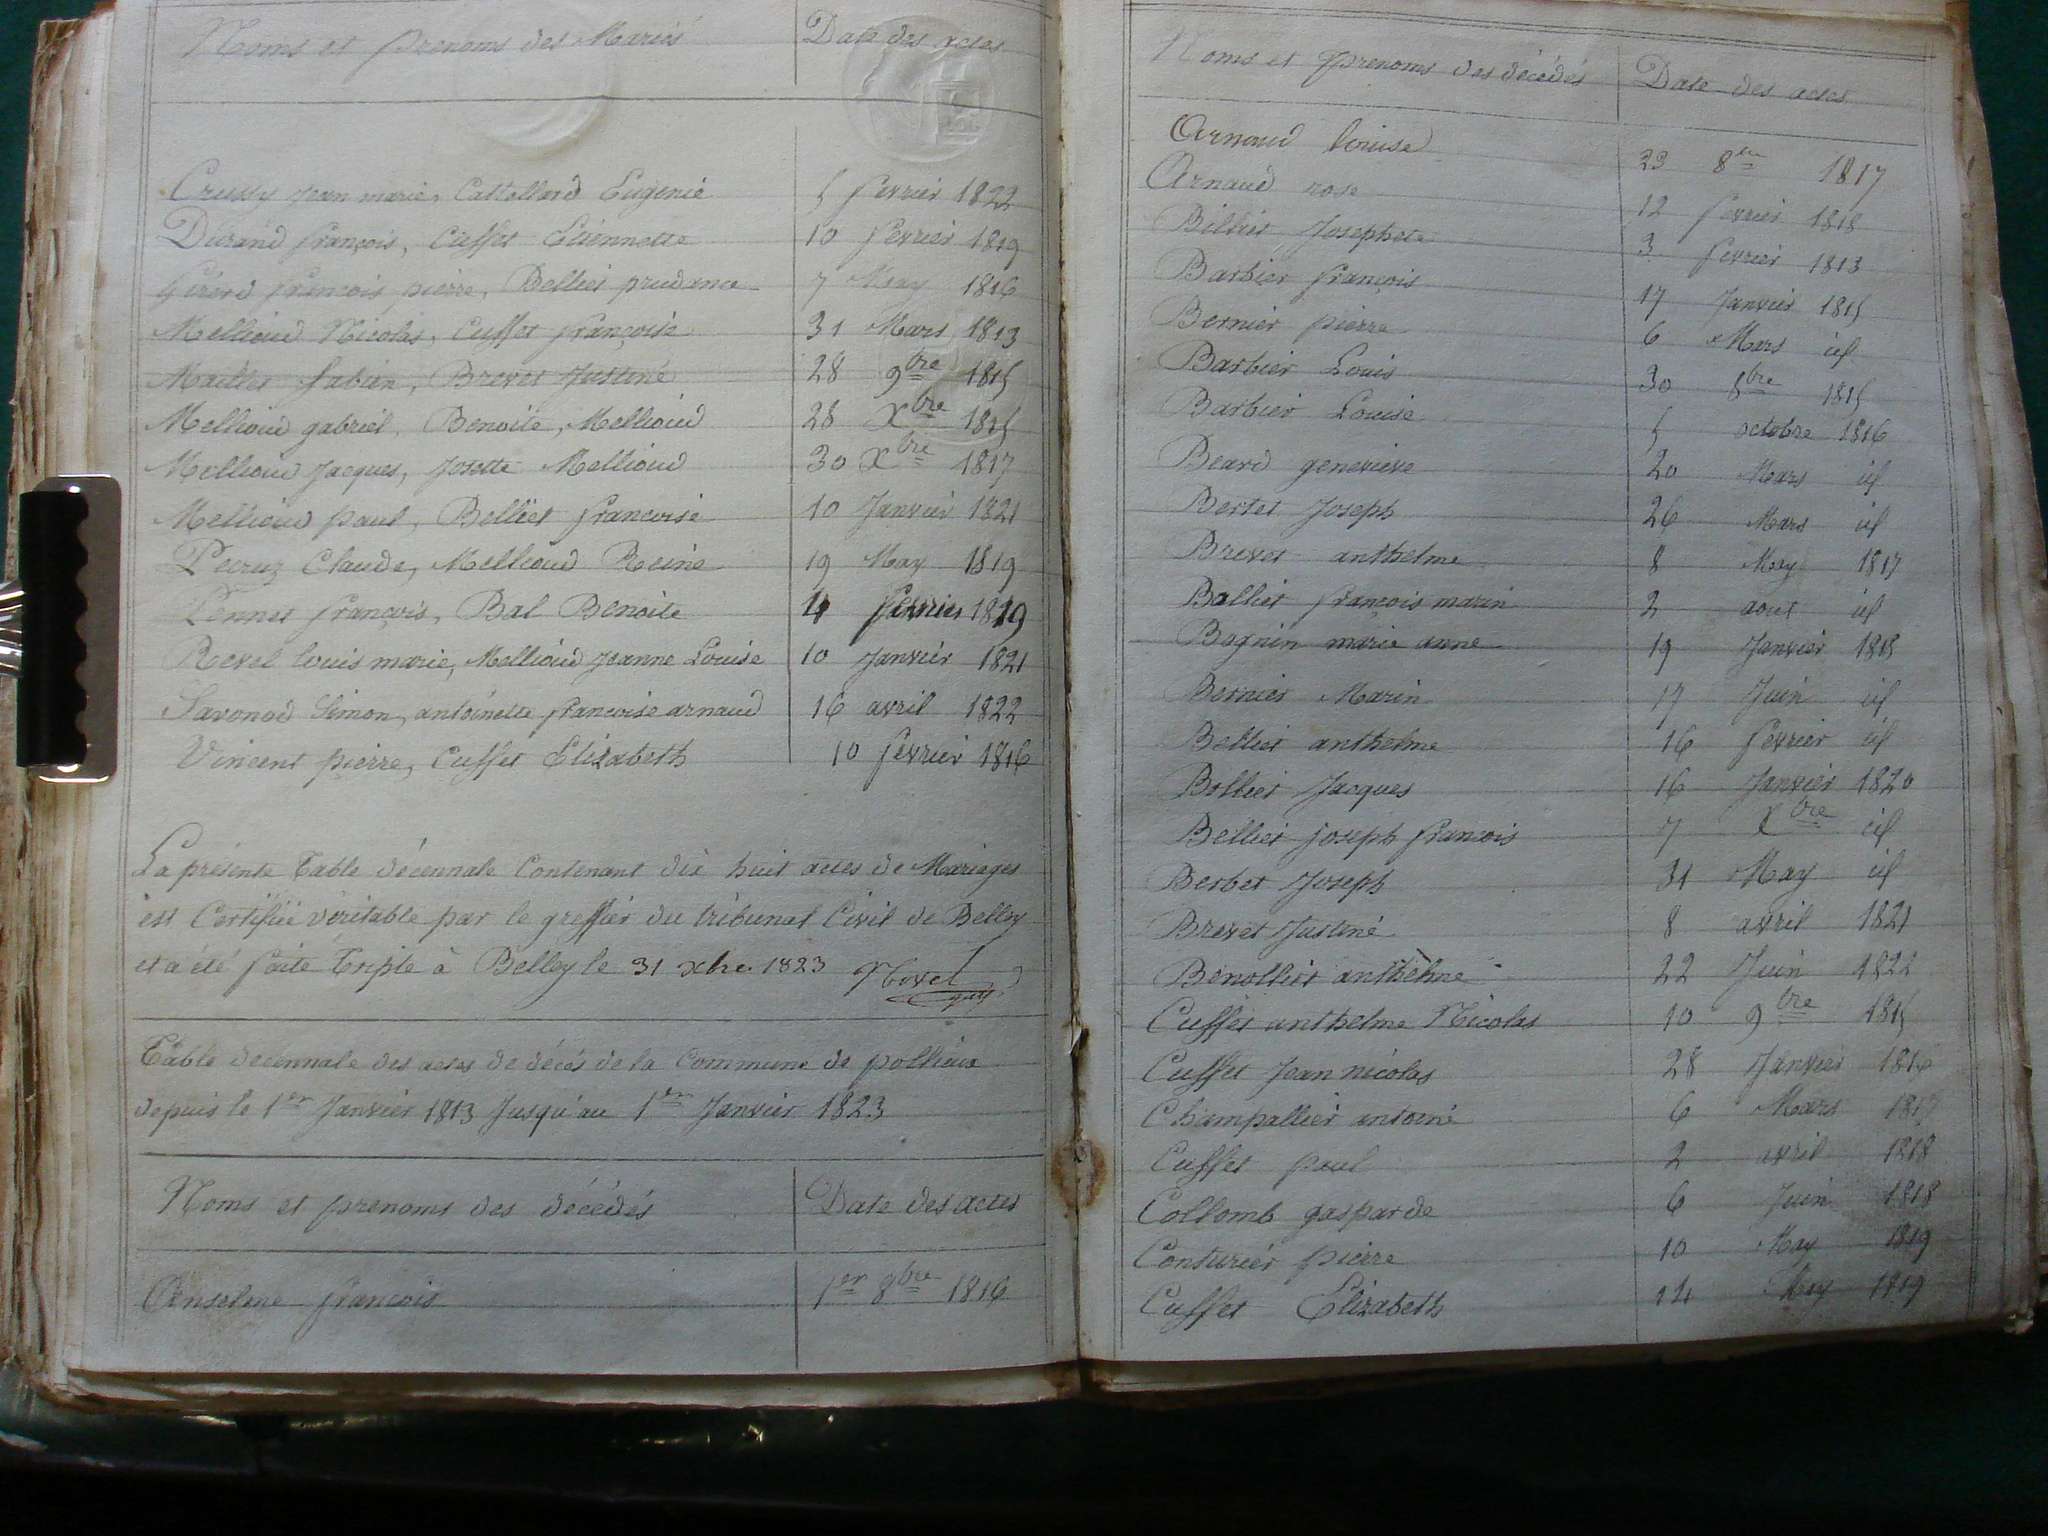 Noms et prenoms des Mariés Date des actes
Crussy jean marie, Castellard Eugenie 5 fevrier 1822
Durand françois, Cuffet Etiennette 10 fevrier 1819
Girerd francois pierre, Bellier prudance 7 May 1816
Mellioud Nicolas, Cuffet françoise 31 Mars 1813
Maillet fabien, Brevet Justine 28 9bre 1815
Mellioud gabriel, Benoite, Mellioud 28 Xbre 1815
Mellioud Jacques, Josette Mellioud 30 Xbre 1817
Mellioud paul, Bellier francoise 10 Janvier 1821
Claude, Mellioud Reine 19 May 1819
françois, Bal Benoite 4 fevrier 1819
Revel louis marie, Mellioud Jeanne Louise 10 Janvier 1821
Savonod Simon, antoinette francoise arnaud 16 avril 1822
Vincent pierre, Cuffet Elizabeth 10 fevrier 1816
La présente Table décennale Contenant dix huit actes de Mariages
est Certifiée véritable par le greffier du tribunal Civil de Belley
et a été faite triple à Belley le 31 xbre 1823
Table decennale des actes de décès de la Commune de pollieux
depuis le 1er Janvier 1813 Jusqu'au 1er Janvier 1823
Noms et prenoms des décédés Date des actes
Anselme francois 1er 8bre 1816
Noms et prenoms des décédés Date des actes
Arnaud louise 23 8bre 1817
Arnaud rose 12 fevrier 1818
Billiet Josephete 3 fevrier 1813
Barbier françois 17 Janvier 1815
Bernier pierre 6 Mars id
Barbier Louis 30 8bre 1815
Barbier Louise 5 octobre 1816
Beard genevieve 20 Mars id
Bertet Joseph 26 Mars id
Brevet anthelme 8 May 1817
Ballier françois marin 2 aout id
Bognin marie anne 19 Janvier 1818
Bernier Marin 17 Juin id
Bellier anthelme 16 fevrier id
Bollier Jacques 16 Janvier 1820
Bellier joseph francois 7 Xbre id
Berbet Joseph 31 May id
Brevet Justine 8 avril 1821
Benollier anthelme 22 Juin 1822
Cuffet anthelme Nicolas 10 9bre 1815
Cuffet Jean nicolas 28 Janvier 1816
Champallier antoine 6 Mars 1817
Cuffet paul 2 avril 1818
Collomb gasparde 6 Juin 1818
Couturier pierre 10 May 1819
Cuffet Elizabeth 14 May 1819